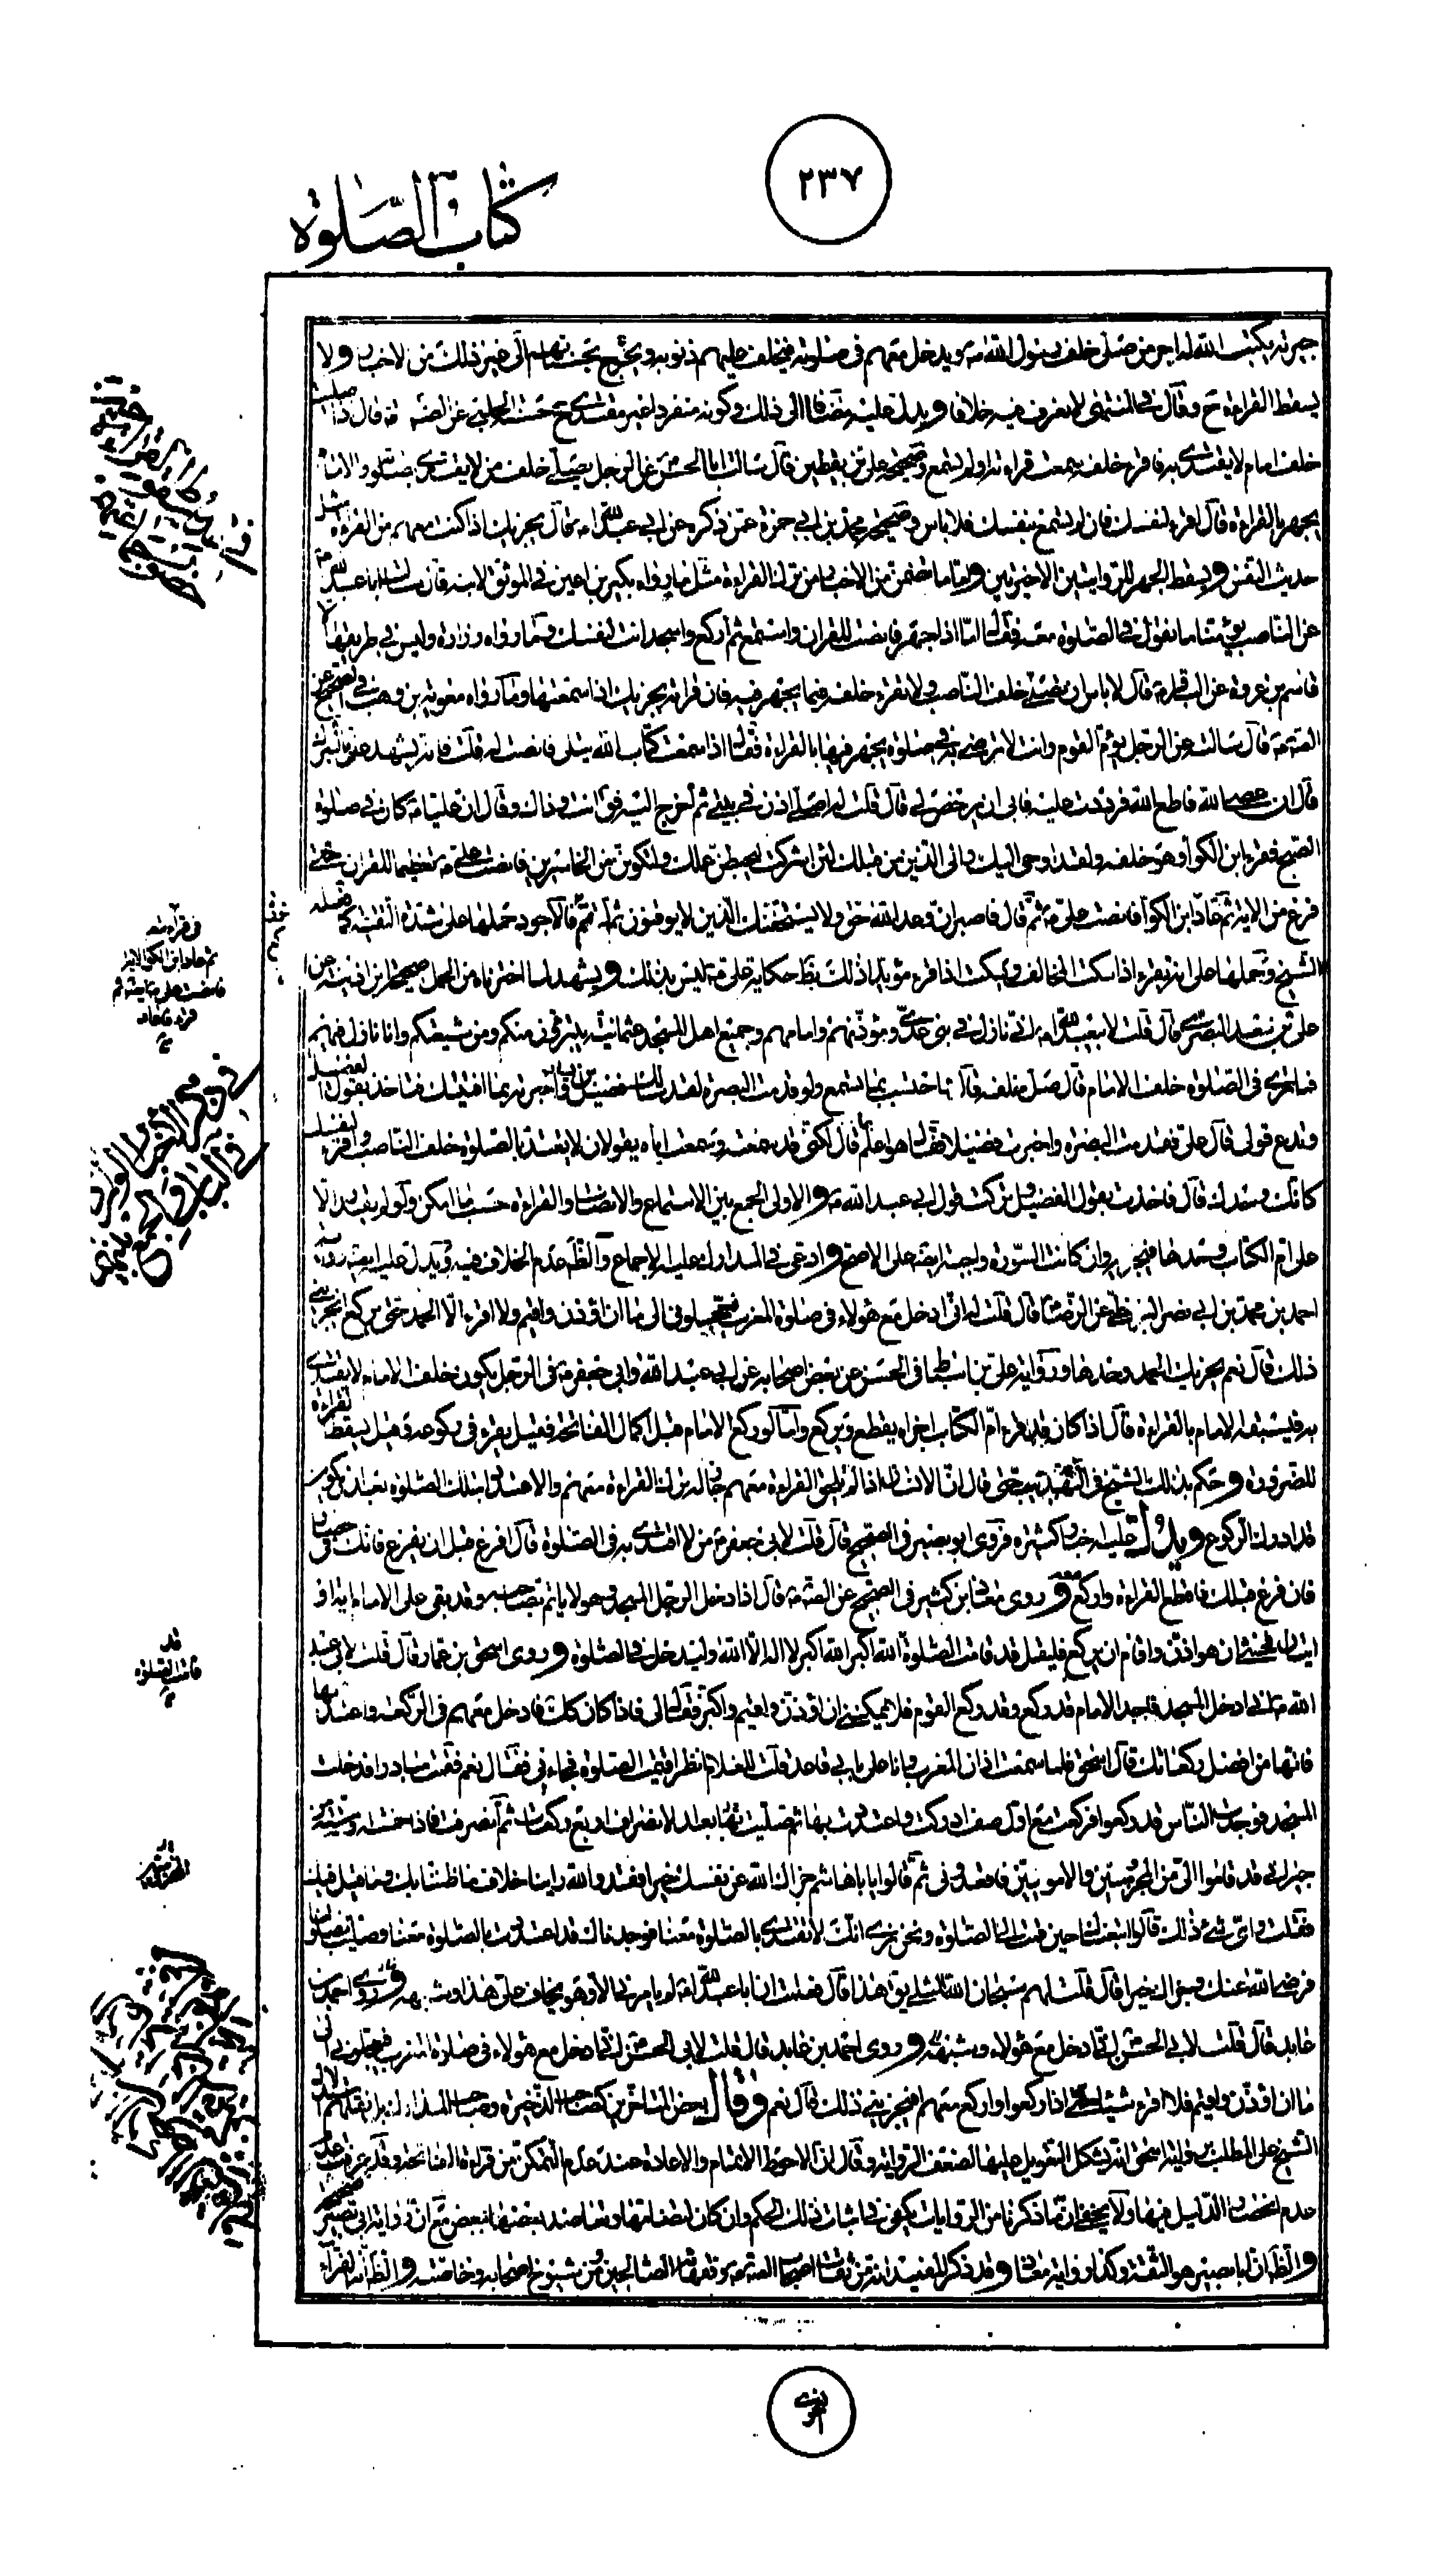 ٢٣٧
كتاب الصلوة
يكتب الله له اجر من صلى خلف رسول الله ويدخل معهم في صلوته فيخلف عليهم ذنوبه ويخرج بحسناتهم الى غير ذلك من الاخبار ولا
يسقط القراءة ح وقال في المنتهى لا نعرف فيه خلافا ويدل عليه مضافا الى ذلك وكونه منفردا غير مقتد حسنة الحلبي عن الصـ قال اذا صليت
خلف امام لا يقتدى به فاقرء خلفه سمعت قراءته او لم تسمع وصحيحة علي بن يقطين قال سالت ابا الحسن عن الرجل يصلي خلف من لا يقتدى بصلوته والامام
يجهر بالقراءة قال اقرء لنفسك فان لم تسمع نفسك فلا باس وصحيحة محمد بن ابي حمزة عمن ذكره عن ابي عبد الله قال يجزيك اذا كنت معهم من القراءة مثل
حديث النفس ويسقط الجهر للروايتين الاخيرتين واما ما تضمن من الاخبار من ترك القراءة مثل ما رواه بكير بن اعين في الموثق لابنه قال سالت ابا عبد الله
عن الناصب يؤمنا ما نقول في الصلوة معه فقال اما اذا جهر فانصت للقران واستمع ثم اركع واسجد انت لنفسك وما رواه زرارة وليس في طريقها الا
قاسم بن عروة عن الباقر قال لا باس ان تصلي خلف الناصب ولا تقرء خلفه فيما يجهر فيه فان قرائته يجزيك اذا سمعتها وما رواه معوية بن وهب في الصحيح عن
قال سالته عن الرجل يؤم القوم وانت لا ترضى به في صلوة يجهر فيها بالقراءة فقال اذا سمعت كتاب الله يتلى فانصت له قلت فانه يشهد علي بالشرك
قال ان عصى الله فاطع الله فرددت عليه فابى ان يرخص لي قال قلت له اصلي اذن في بيتي ثم اخرج اليه فقال انت وذاك وقال ان عليا كان في صلوة
الصبح فقرء ابن الكوا وهو خلفه ولقد اوحي اليك والى الذين من قبلك لئن اشركت ليحبطن عملك ولتكونن من الخاسرين فانصت علي تعظيما للقران حتى
فرغ من الاية ثم عاد ابن الكوا فانصت علي ثم قال فاصبر ان وعد الله حق ولا يستخفنك الذين لا يوقنون ثم اتم فالاجود حملها على شدة التقية كما فعله
الشيخ وحملها على انه يقرء اذا سكت المخالف ويسكت اذا قرء مؤيدا ذلك بظ حكاية علي ليس بذلك ويشهد لما اخترناه من الحمل صحيحة ابن اذينة عن
علي بن سعيد البصري قال قلت لابي عبد الله اني نازل في بني عدي ومؤذنهم وامامهم وجميع اهل المسجد عثمانية يتبرؤن منكم ومن شيعتكم وانا نازل فيهم
فما ترى في الصلوة خلف الامام قال صل خلفه قال واحتسب بما تسمع ولو قدمت البصرة لقد سالك فضيل بن يسار واخبرته بما افتيتك فتاخذ بقول الفضيل
وتدع قولي قال علي فقدمت البصرة واخبرت فضيلا فقال هو اعلم قال لكني قد سمعته وسمعت اباه يقولان لا يعتد بالصلوة خلف الناصب واقرء لنفسك
كانك وحدك قال فاخذت بقول الفضيل وتركت قول ابي عبد الله والاولى الجمع بين الاستماع والانصات والقراءة حسب ما امكن ولو لم يقدر الا
على ام الكتاب وحدها فيجزيه وان كانت السورة واجبة ايضا على الاصح وادعى في المدارك عليه الاجماع والظ عدم الخلاف فيه ويدل عليه ايضا رواية
احمد بن محمد بن ابي نصر البزنطي عن الرضا قال قلت له اني ادخل مع هؤلاء في صلوة المغرب فيعجلوني الى ما ان اؤذن واقيم ولا اقرء الا الحمد حتى يركع ايجزيني
ذلك قال نعم يجزيك الحمد وحدها ورواية علي بن اسباط عن بعض اصحابه عن ابي عبد الله وابي جعفر في الرجل يكون خلف الامام لا يقتدى
به فيسبقه الامام بالقراءة قال اذا كان قد قرء ام الكتاب اجزاه يقطع ويركع واما لو ركع الامام قبل اكمال الفاتحة فقيل يقرء في ركوعه وقيل يسقط القراءة
للضرورة وحكم بذلك الشيخ في التهذيب حتى قال ان الانسان اذا لم يلحق القراءة معهم جاز له ترك القراءة معهم والاعتداد بتلك الصلوة بعد ان يكون
قد ادرك الركوع ويدل عليه اخبار كثيرة فروى ابو بصير في الصحيح قال قلت لابي جعفر من لا اقتدى به في الصلوة قال افرغ قبل ان يفرغ فانك في حصار
فان فرغ قبلك فاقطع القراءة واركع معه وروى معاذ بن كثير في الصحيح عن قال اذا دخل الرجل المسجد وهو لا ياتم بصاحبه وقد بقي على الامام اية او
ايتان فخشي ان هو اذن واقام ان يركع فليقل قد قامت الصلوة الله اكبر الله اكبر لا اله الا الله وليدخل في الصلوة وروى اسحق بن عمار قال قلت لابي عبد
الله اني ادخل المسجد فاجد الامام قد ركع وقد ركع القوم فلا يمكنني ان اؤذن واقيم واكبر فقال لي فاذا كان كذلك فادخل معهم في الركعة واعتد بها
فانها من افضل ركعاتك قال اسحق فلما سمعت اذان المغرب وانا على بابي قاعد قلت للغلام انظر اقيمت الصلوة فجاءني فقال نعم فقمت مبادرا فدخلت
المسجد فوجدت الناس قد ركعوا فركعت مع اول صف ادركت واعتددت بها ثم صليت بعد الانصراف اربع ركعات ثم انصرفت فاذا خمسة او ستة من
جيراني قد قاموا الي من المخزوميين والامويين فاقعدوني ثم قالوا يا با هاشم جزاك الله عن نفسك خيرا فقد والله راينا خلاف ما ظننا بك وما قيل فيك
فقلت واي شيء ذلك قالوا اتبعناك حين قمت الى الصلوة ونحن نرى انك لا تقتدى بالصلوة معنا فوجدناك قد اعتددت بالصلوة معنا وصليت بصلوتنا
فرضي الله عنك وجزاك خيرا قال قلت لهم سبحان الله المثلي يقال هذا قال فعلمت ان ابا عبد الله لم يامرني الا وهو يخاف علي هذا وشبهه وروى احمد بن
عايد قال قلت لابي الحسن اني ادخل مع هؤلاء وشبهه وروى احمد بن عايد قال قلت لابي الحسن اني ادخل مع هؤلاء في صلوة المغرب فيعجلوني الى
ما ان اؤذن واقيم فلا اقرء شيئا حتى اذا ركعوا واركع معهم افيجزيني ذلك قال نعم وقال بعض المتاخرين كصاحب الذخيرة وصاحب المدارك
الشيخ على المطلب برواية اسحق انه يشكل التعويل عليها لضعف الرواية وقال ان الاحوط الاتمام والاعادة عند عدم التمكن من قراءة الفاتحة وقد عرفت
عدم انحصار الدليل فيها ولا يخفى ان ما ذكرنا من الروايات يكفي في اثبات ذلك الحكم وان كان لبعضها
والظ ان ابا بصير هو الثقة وكذا رواية معاذ وقد ذكر المفيد انه من ثقات اصحاب وفقهائه الصالحين ومن شيوخ اصحابه وخاصته والظ
في قرائته
ثم عاد ابن الكوا الاية
فانصت علي ايضا ثم
قرء فاعاد
قد
قامت الصلوة